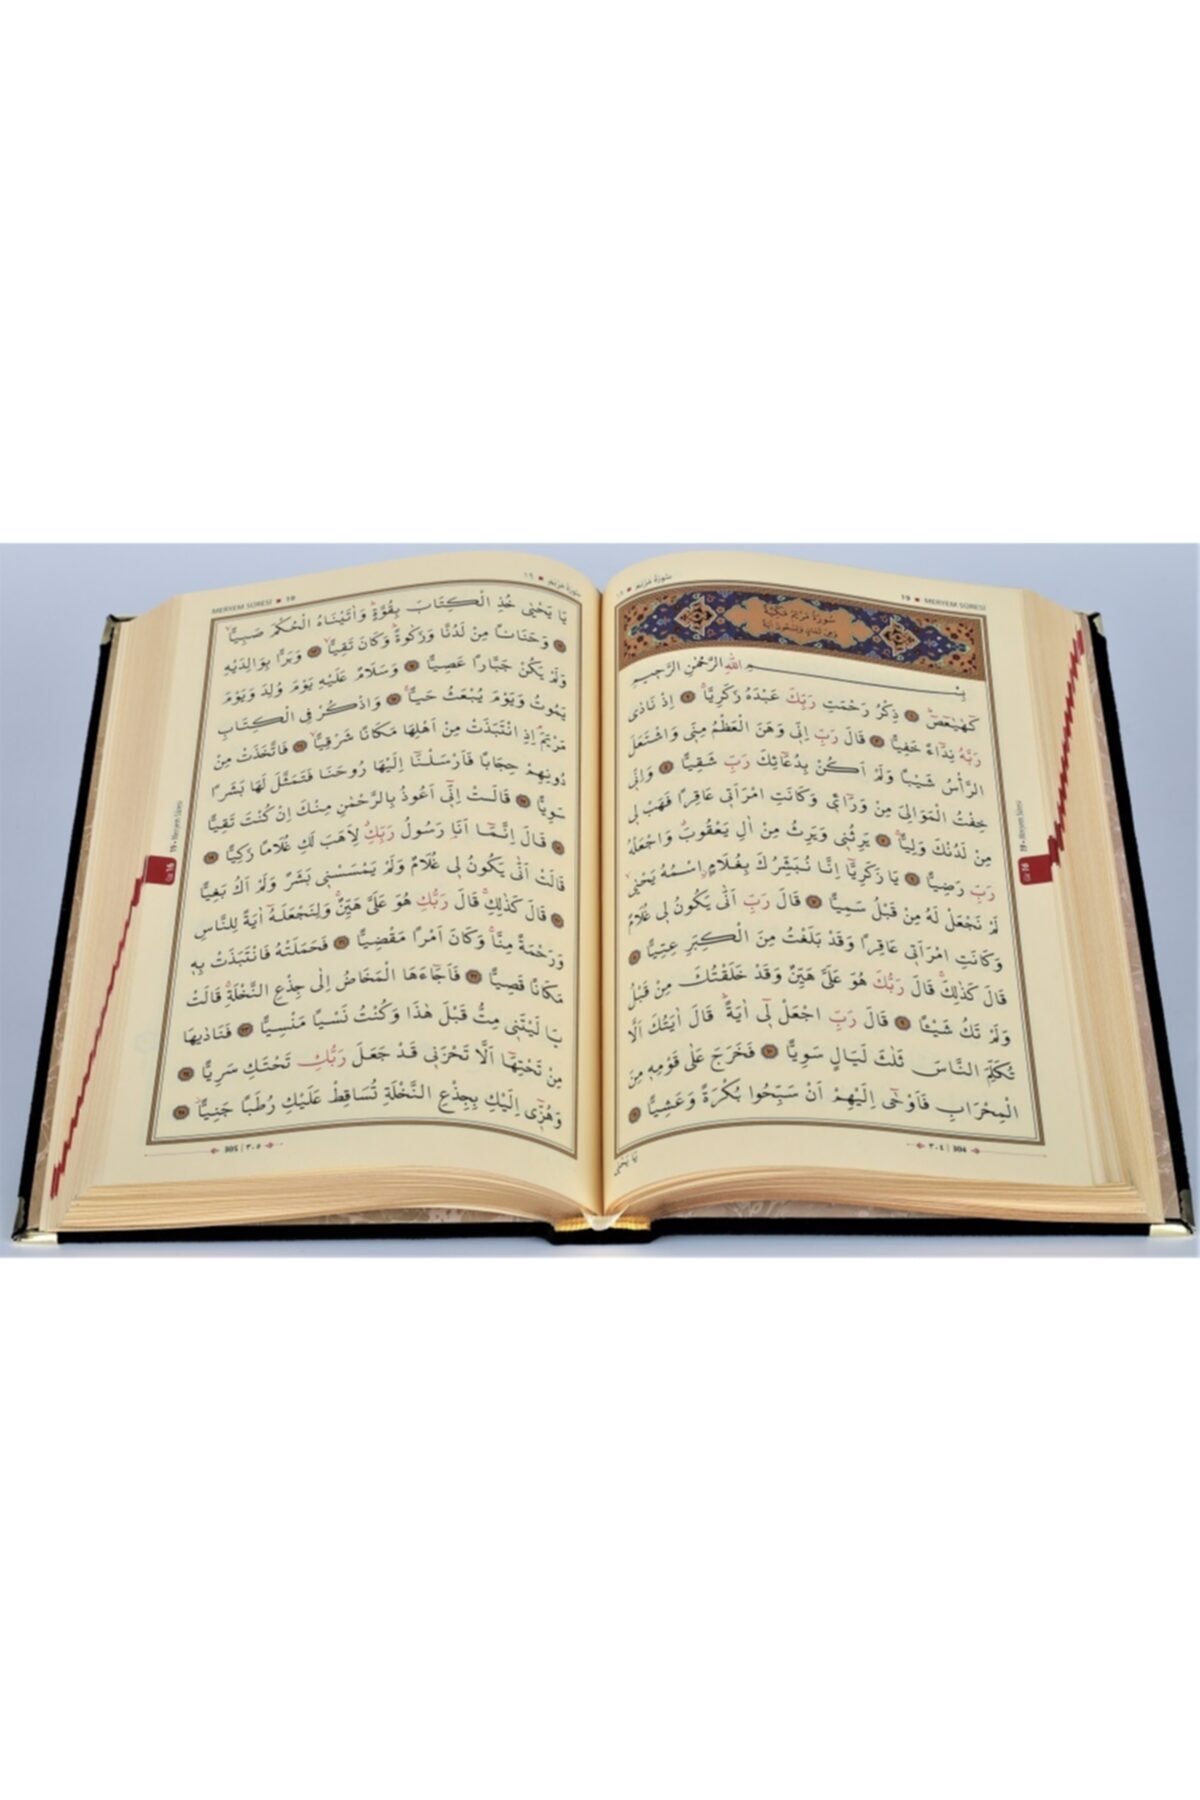 19 ■ MERYEM SÛRESİ
سُورَةُ مَرْيَمَ ■ ١٩
سُورَةُ مَرْيَمَ مَكِّيَّةٌ
وَهِيَ ثَمَانٍ وَتِسْعُونَ اٰيَةً
بِسْمِ اللّٰهِ الرَّحْمٰنِ الرَّحٖيمِ
كٓهٰيٰعٓصٓ ﴿١﴾ ذِكْرُ رَحْمَتِ رَبِّكَ عَبْدَهُ زَكَرِيَّا ﴿٢﴾ اِذْ نَادٰى
رَبَّهُ نِدَٓاءً خَفِيًّا ﴿٣﴾ قَالَ رَبِّ اِنّٖي وَهَنَ الْعَظْمُ مِنّٖي وَاشْتَعَلَ
الرَّأْسُ شَيْبًا وَلَمْ اَكُنْ بِدُعَٓائِكَ رَبِّ شَقِيًّا ﴿٤﴾ وَاِنّٖي
خِفْتُ الْمَوَالِيَ مِنْ وَرَٓائٖي وَكَانَتِ امْرَاَتٖي عَاقِرًا فَهَبْ لٖي
مِنْ لَدُنْكَ وَلِيًّا ﴿٥﴾ يَرِثُنٖي وَيَرِثُ مِنْ اٰلِ يَعْقُوبَ وَاجْعَلْهُ
رَبِّ رَضِيًّا ﴿٦﴾ يَا زَكَرِيَّٓا اِنَّا نُبَشِّرُكَ بِغُلَامٍ اسْمُهُ يَحْيٰى
لَمْ نَجْعَلْ لَهُ مِنْ قَبْلُ سَمِيًّا ﴿٧﴾ قَالَ رَبِّ اَنّٰى يَكُونُ لٖي غُلَامٌ
وَكَانَتِ امْرَاَتٖي عَاقِرًا وَقَدْ بَلَغْتُ مِنَ الْكِبَرِ عِتِيًّا ﴿٨﴾
قَالَ كَذٰلِكَ قَالَ رَبُّكَ هُوَ عَلَيَّ هَيِّنٌ وَقَدْ خَلَقْتُكَ مِنْ قَبْلُ
وَلَمْ تَكُ شَيْـًٔا ﴿٩﴾ قَالَ رَبِّ اجْعَلْ لٖٓي اٰيَةً قَالَ اٰيَتُكَ اَلَّا
تُكَلِّمَ النَّاسَ ثَلٰثَ لَيَالٍ سَوِيًّا ﴿١٠﴾ فَخَرَجَ عَلٰى قَوْمِهٖ مِنَ
الْمِحْرَابِ فَاَوْحٰٓى اِلَيْهِمْ اَنْ سَبِّحُوا بُكْرَةً وَعَشِيًّا ﴿١١﴾
٣٠٤ | 304
يَا يَحْيٰى
Cüz 16
19 • Meryem Sûresi
MERYEM SÛRESİ ■ 19
سُورَةُ مَرْيَمَ ■ ١٩
يَا يَحْيٰى خُذِ الْكِتَابَ بِقُوَّةٍ وَاٰتَيْنَاهُ الْحُكْمَ صَبِيًّا
﴿١٢﴾ وَحَنَانًا مِنْ لَدُنَّا وَزَكٰوةً وَكَانَ تَقِيًّا ﴿١٣﴾ وَبَرًّا بِوَالِدَيْهِ
وَلَمْ يَكُنْ جَبَّارًا عَصِيًّا ﴿١٤﴾ وَسَلَامٌ عَلَيْهِ يَوْمَ وُلِدَ وَيَوْمَ
يَمُوتُ وَيَوْمَ يُبْعَثُ حَيًّا ﴿١٥﴾ وَاذْكُرْ فِي الْكِتَابِ
مَرْيَمَ اِذِ انْتَبَذَتْ مِنْ اَهْلِهَا مَكَانًا شَرْقِيًّا ﴿١٦﴾ فَاتَّخَذَتْ مِنْ
دُونِهِمْ حِجَابًا فَاَرْسَلْنَٓا اِلَيْهَا رُوحَنَا فَتَمَثَّلَ لَهَا بَشَرًا
سَوِيًّا ﴿١٧﴾ قَالَتْ اِنّٖٓي اَعُوذُ بِالرَّحْمٰنِ مِنْكَ اِنْ كُنْتَ تَقِيًّا
﴿١٨﴾ قَالَ اِنَّمَٓا اَنَا۬ رَسُولُ رَبِّكِ لِاَهَبَ لَكِ غُلَامًا زَكِيًّا ﴿١٩﴾
قَالَتْ اَنّٰى يَكُونُ لٖي غُلَامٌ وَلَمْ يَمْسَسْنٖي بَشَرٌ وَلَمْ اَكُ بَغِيًّا
﴿٢٠﴾ قَالَ كَذٰلِكِ قَالَ رَبُّكِ هُوَ عَلَيَّ هَيِّنٌ وَلِنَجْعَلَهُٓ اٰيَةً لِلنَّاسِ
وَرَحْمَةً مِنَّا وَكَانَ اَمْرًا مَقْضِيًّا ﴿٢١﴾ فَحَمَلَتْهُ فَانْتَبَذَتْ بِهٖ
مَكَانًا قَصِيًّا ﴿٢٢﴾ فَاَجَٓاءَهَا الْمَخَاضُ اِلٰى جِذْعِ النَّخْلَةِ قَالَتْ
يَا لَيْتَنٖي مِتُّ قَبْلَ هٰذَا وَكُنْتُ نَسْيًا مَنْسِيًّا ﴿٢٣﴾ فَنَادٰيهَا
مِنْ تَحْتِهَٓا اَلَّا تَحْزَنٖي قَدْ جَعَلَ رَبُّكِ تَحْتَكِ سَرِيًّا ﴿٢٤﴾
وَهُزّٖٓي اِلَيْكِ بِجِذْعِ النَّخْلَةِ تُسَاقِطْ عَلَيْكِ رُطَبًا جَنِيًّا ﴿٢٥﴾
305 | ٣٠٥
Cüz 16
19 • Meryem Sûresi